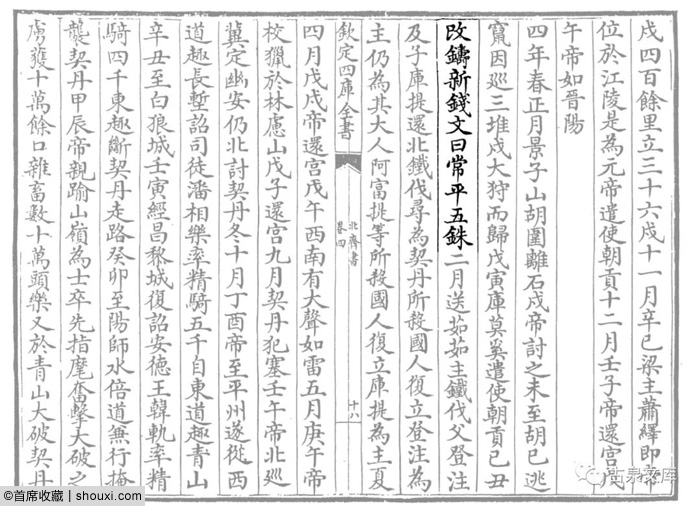 戍四百餘里立三十六戍十一月辛巳梁主蕭繹即帝
位於江陵是為元帝遣使朝貢十二月壬子帝還宫戊
午帝如晉陽
四年春正月景子山胡圍離石戍帝討之未至胡已逃
竄因廵三堆戍大狩而歸戊寅庫莫奚遣使朝貢己丑
改鑄新錢文曰常平五銖二月送茹茹主鐵伐父登注
及子庫提還北鐵伐尋為契丹所殺國人復立登注為
主仍為其大人阿富提等所殺國人復立庫提為主夏
欽定四庫全書
北齊書
卷四
十八
四月戊戌帝還宫戊午西南有大聲如雷五月庚午帝
校獵於林慮山戊子還宫九月契丹犯塞壬午帝北廵
冀定幽安仍北討契丹冬十月丁酉帝至平州遂從西
道趣長塹詔司徒潘相樂率精騎五千自東道趣青山
辛丑至白狼城壬寅經昌黎城復詔安德王韓軌率精
騎四千東趣斷契丹走路癸卯至陽師水倍道兼行掩
襲契丹甲辰帝親踰山嶺為士卒先指麾奮擊大破之
虜獲十萬餘口雜畜數十萬頭樂又於青山大破契丹
古泉文库
@首席收藏 | shouxi.com